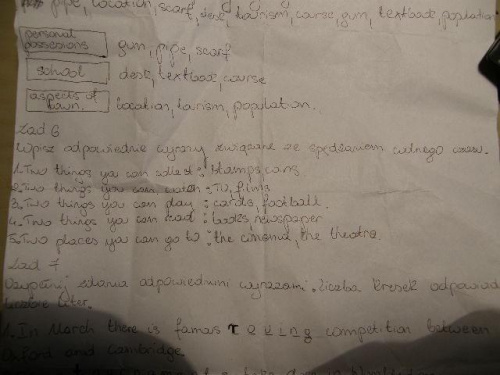 pipe, location, scarf, desk, tourism, course, gun, textbook, population
personal possessions
gun, pipe, scarf
school
desk, textbook, course
aspects of town
location, turism, population.
Zad 6
Wpisz odpowiednie wyrazy związane ze spędzaniem wolnego czasu.
1. Two things you can collect: stamps, cars
2. Two things you can watch: TV, films
3. Two things you can play: cards, football.
4. Two things you can read: books, newspaper
5. Two places you can go to: the cinema, the theatre.
Zad 7
zdania odpowiednimi wyrazami. Liczba kresek odpowiad
liczbie liter.
1. In March there is famous competition between
Oxford and Cambridge.